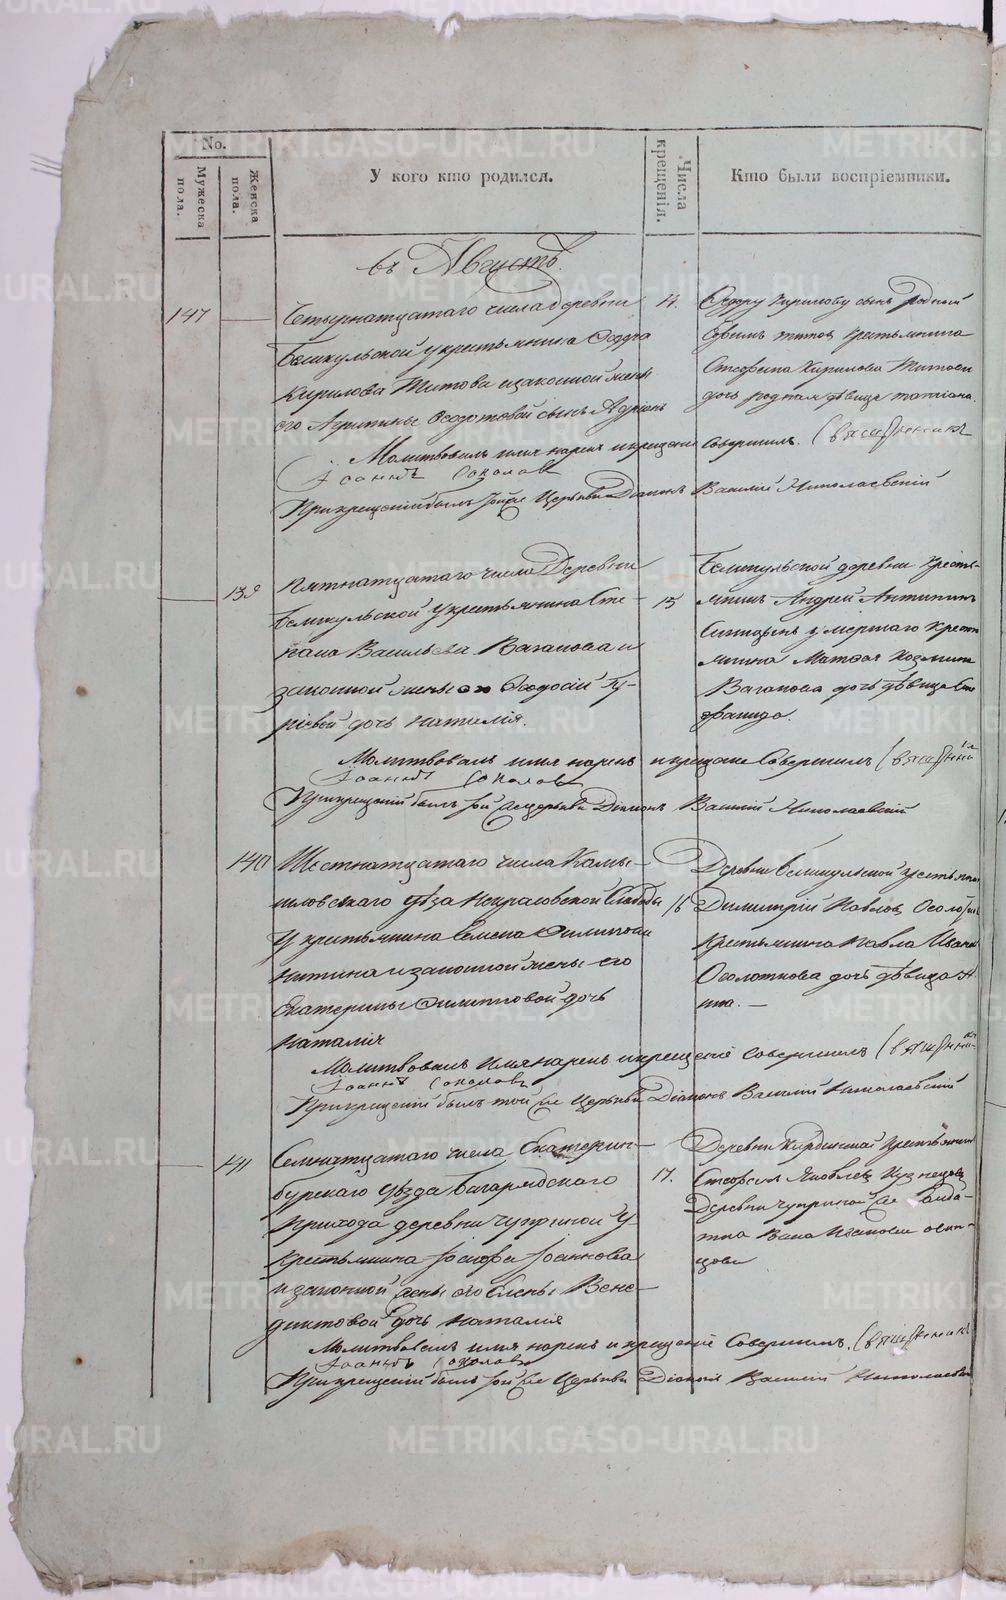 No.
Мужеска пола.
Женска пола.
У кого кто родился.
Числа крещенія.
Кто были воспріемники.
въ Августѣ.
147 Четырнатцатого числа Деревни 14.
Беликульской у крестьянина Ѳедора
Кирилова Титова изаконной жены
его Агрипины Ѳедотовой сынъ Адріанъ
Ѳедору Кирилову сынъ родный
Ефимъ Титовъ крестьянина
Стефана Кирилова Титова
дочь родная дѣвица Татіана.
Молитвовалъ имя нарекъ икрещеніе Совершилъ. Священникъ
Іоаннъ Соколовъ
Прикрещеніи былъ той же Церькви Діаконъ Василій Николаевскій
139 Пятнатцатого числа Деревни
Беликульской Укрестьянина Сте- 15
пана Васильева Ваганова и
законной жены его Ѳеодосіи Гу-
ріевой дочь Наталія.
Беликульской деревни Кресть-
янинъ Андрей Антипинъ
умершаго Кресть
янина Матвея Козмина
Ваганова дочь дѣвица
Молитвовалъ имя нарекъ икрещеніе Совершилъ Священникъ
Іоаннъ Соколовъ
Прикрещеніи былъ той же Церькви Діаконъ Василій Николаевскій
140 Шестнатцатого числа Камы-
шловскаго уѣзда Некрасовской Слободы 16
Укрестьянина Семена Филипова
Никитина изаконной жены его
Екатерины Филиповой дочь
Наталія
Деревни Беликульской крестьянинъ
Димитрій Павловъ
крестьянина Павла Ивана
Осолоткова дочь дѣвица А-
нна. —
Молитвовалъ Имя нарекъ икрещеніе Совершилъ Священникъ
Іоаннъ Соколовъ
Прикрещеніи былъ той же Церькви Діаконъ Василій Николаевскій
141 Семнатцатого числа Екатерин-
бурскаго Уѣзда Багарядского 17.
Прихода деревни Чуприной У
Крестьянина Іосифа Іоаннова
изаконной жены его Елены Вене-
диктовой дочь Наталія
Деревни крестьянинъ
Стефанъ Яковлевъ Кузнецовъ
Деревни Чуприной
Молитвовалъ имя нарекъ и крещеніе Совершилъ. Священникъ
Іоаннъ Соколовъ
Прикрещеніи былъ той же Церькви Діаконъ Василій Николаевскій
METRIKI.GASO-URAL.RU